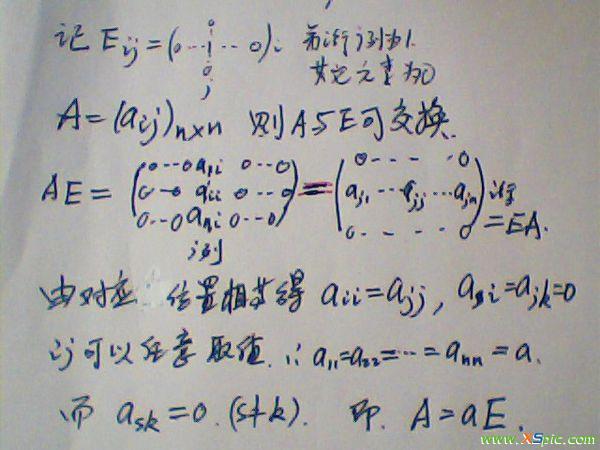 记 E_ij = (0 ··· 1 ··· 0) i 第i行j列为1.
0
0
j
其它元素为0
A = (a_ij)_{n×n} 则A与E可交换.
AE = (0···0 a_1i 0···0 = (0 - - - - 0
0···0 a_ii 0···0 a_j1 ··· a_jj ··· a_jn) i行
0···0 a_ni 0···0) 0 - - - - 0 = EA.
j列
由对应位置相等得 a_ii = a_jj, a_si = a_jk = 0
ij可以任意取值. ∴ a_11 = a_22 = ··· = a_nn = a.
而 a_sk = 0. (s≠k). 即. A = aE.
www.XSpic.com